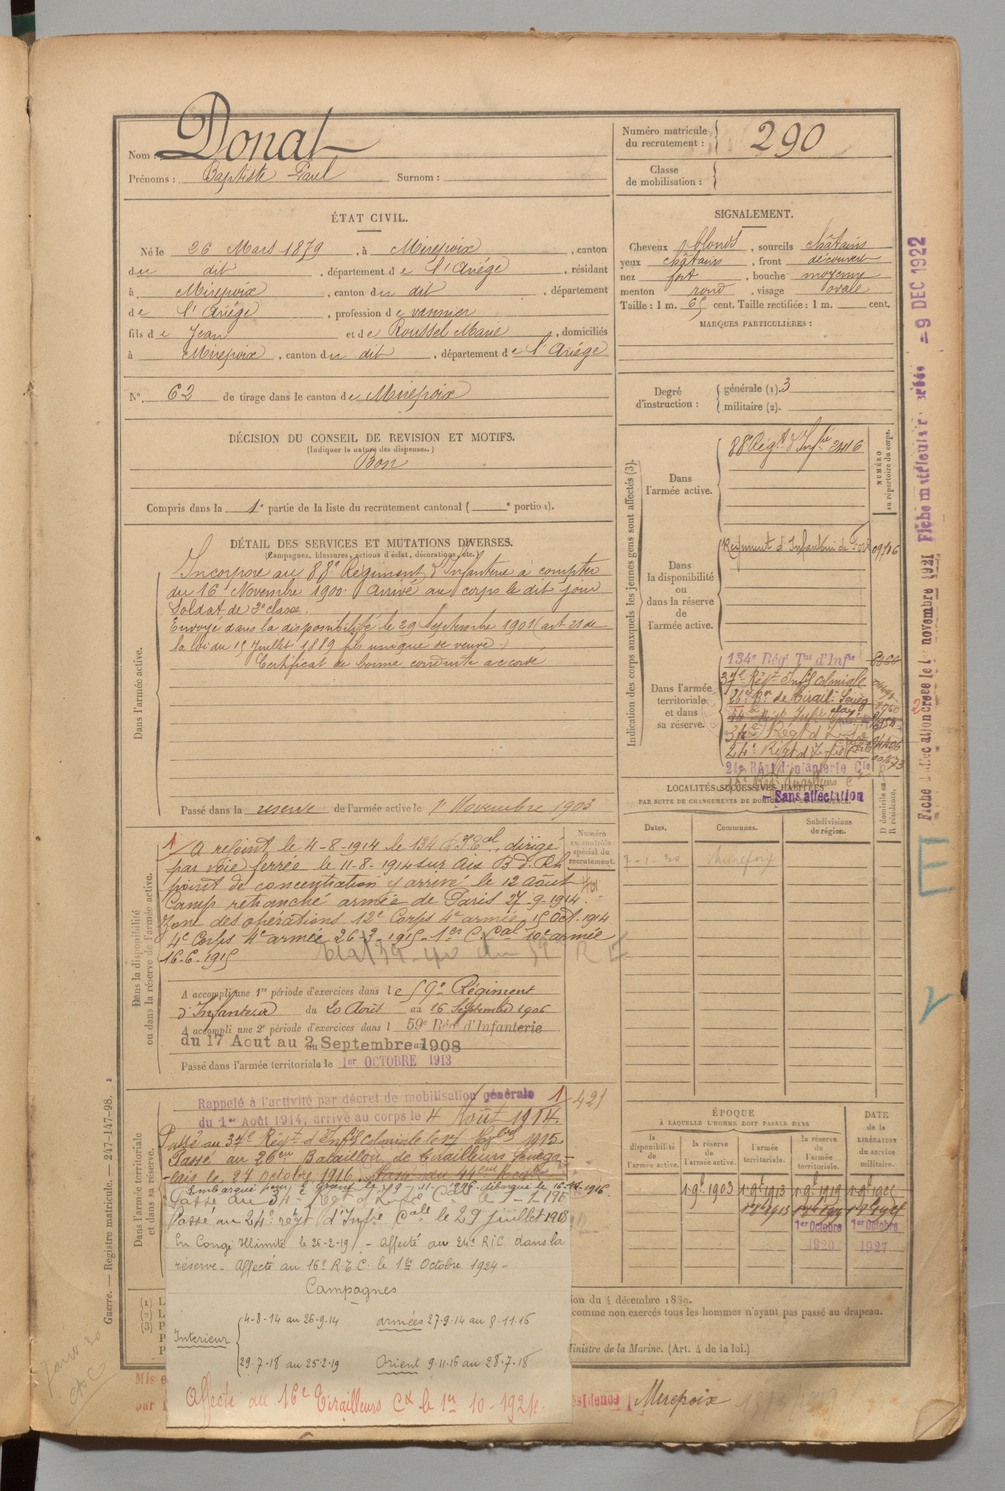 Nom : Donat
Prénoms : Baptiste Paul Surnom :
Numéro matricule du recrutement : 290
Classe de mobilisation :
ÉTAT CIVIL.
Né le 26 Mars 1879, à Mirepoix, canton
du dit, département de l'Ariége, résidant
à Mirepoix, canton du dit, département
de l'Ariége, profession de vannier
fils de Jean et de Roussel Marie, domiciliés
à Mirepoix, canton du dit, département de l'Ariége
N° 62 de tirage dans le canton de Mirepoix
SIGNALEMENT.
Cheveux blonds, sourcils châtains
yeux châtains, front découvert
nez fort, bouche moyenne
menton rond, visage ovale
Taille : 1 m. 65 cent. Taille rectifiée : 1 m. cent.
MARQUES PARTICULIÈRES :
Degré d'instruction : générale (1). 3
militaire (2).
DÉCISION DU CONSEIL DE REVISION ET MOTIFS.
(Indiquer la nature des dispenses.)
Bon
Compris dans la 1e partie de la liste du recrutement cantonal ( e portion).
DÉTAIL DES SERVICES ET MUTATIONS DIVERSES.
(Campagnes, blessures, actions d'éclat, décorations, etc.)
Dans l'armée active.
Incorporé au 88e Régiment d'Infanterie a compter
du 16 Novembre 1900. Arrivé au corps le dit jour
Soldat de 2e classe.
Envoyé dans la disponibilité le 29 Septembre 1901 (art 21 de
la loi du 15 Juillet 1889 fils unique de veuve)
Certificat de bonne conduite accordé
Passé dans la réserve de l'armée active le 1er Novembre 1903
Indication des corps auxquels les jeunes gens sont affectés (3).
NUMÉRO au répertoire du corps.
Dans l'armée active.
88e Régt d'Infie 2416
Dans la disponibilité ou dans la réserve de l'armée active.
Régiment d'Infanterie de Foix
Dans l'armée territoriale et dans sa réserve.
134e Régt Tal d'Infie
37e Régt Infie Coloniale
26e Bn de Tirail. Sénég.
24e Régt d'Infie
21e Régt d'Infanterie Cle
Sans affectation
LOCALITÉS SUCCESSIVES HABITÉES
PAR SUITE DE CHANGEMENTS DE DOMICILE
Dates. Communes. Subdivisions de région. D domicile ou R résidence.
7-1-30 Mirepoix
Dans la disponibilité ou dans la réserve de l'armée active.
Numéro au contrôle spécial du recrutement.
A rejoint le 4-8-1914 le 134 R.I.Tal, dirigé
par voie ferrée le 11-8-1914 sur Aix B. d. Rh
point de concentration y arrivé le 12 Août
Camp retranché armée de Paris 27-9-1914.
Zone des opérations 12e Corps 4e armée, 15 Oct. 1914
4e Corps 4e armée 26-3-1915 - 1er C. Cal 10e armée
16-6-1915
A accompli une 1re période d'exercices dans le 59e Régiment
d'Infanterie du 20 Août au 16 Septembre 1906
A accompli une 2e période d'exercices dans l 59e Rég d'Infanterie
du 17 Aout au 2 Septembre 1908
Passé dans l'armée territoriale le 1er OCTOBRE 1913
Dans l'armée territoriale et dans sa réserve.
Rappelé à l'activité par décret de mobilisation générale
du 1er Août 1914, arrivé au corps le 4 Août 1914.
421
Passé au 37e Régt d'Infie Coloniale le 1915
Passé au 26eme Bataillon de Tirailleurs Sénéga-
lais le 27 octobre 1916.
Passé au 34e Régt d'Infie Cle le
Passé au 24e régt d'Infie Cale le 29 juillet 1918
En Congé Illimité le 26-2-19. - Affecté au 24e RIC dans la
réserve - Affecté au 16e R.T.C. le 1er Octobre 1924 -
Campagnes
Intérieur 4-8-14 au 26-9-14 armées 27-9-14 au 8-11-16
29-7-18 au 25-2-19 Orient 9-11-16 au 28-7-18
Affecté au 16e Tirailleurs Cx le 1er 10-1924.
ÉPOQUE
À LAQUELLE L'HOMME DOIT PASSER DANS
la disponibilité de l'armée active. la réserve de l'armée active. l'armée territoriale. la réserve de l'armée territoriale.
DATE de la LIBÉRATION du service militaire.
1er Octobre 1920 1er Octobre 1927
ion du 4 décembre 1889.
comme non exercés tous les hommes n'ayant pas passé au drapeau.
Ministre de la Marine. (Art. 4 de la loi.)
Mirepoix
Guerre. — Registre matricule. — 247-147-98.
Fiche matriculaire créée -9 DEC 1922